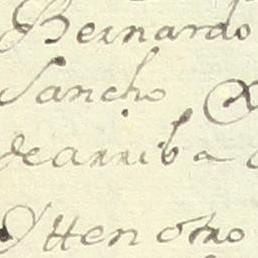 Bernardo
Sancho
de arriba
Ytten otro